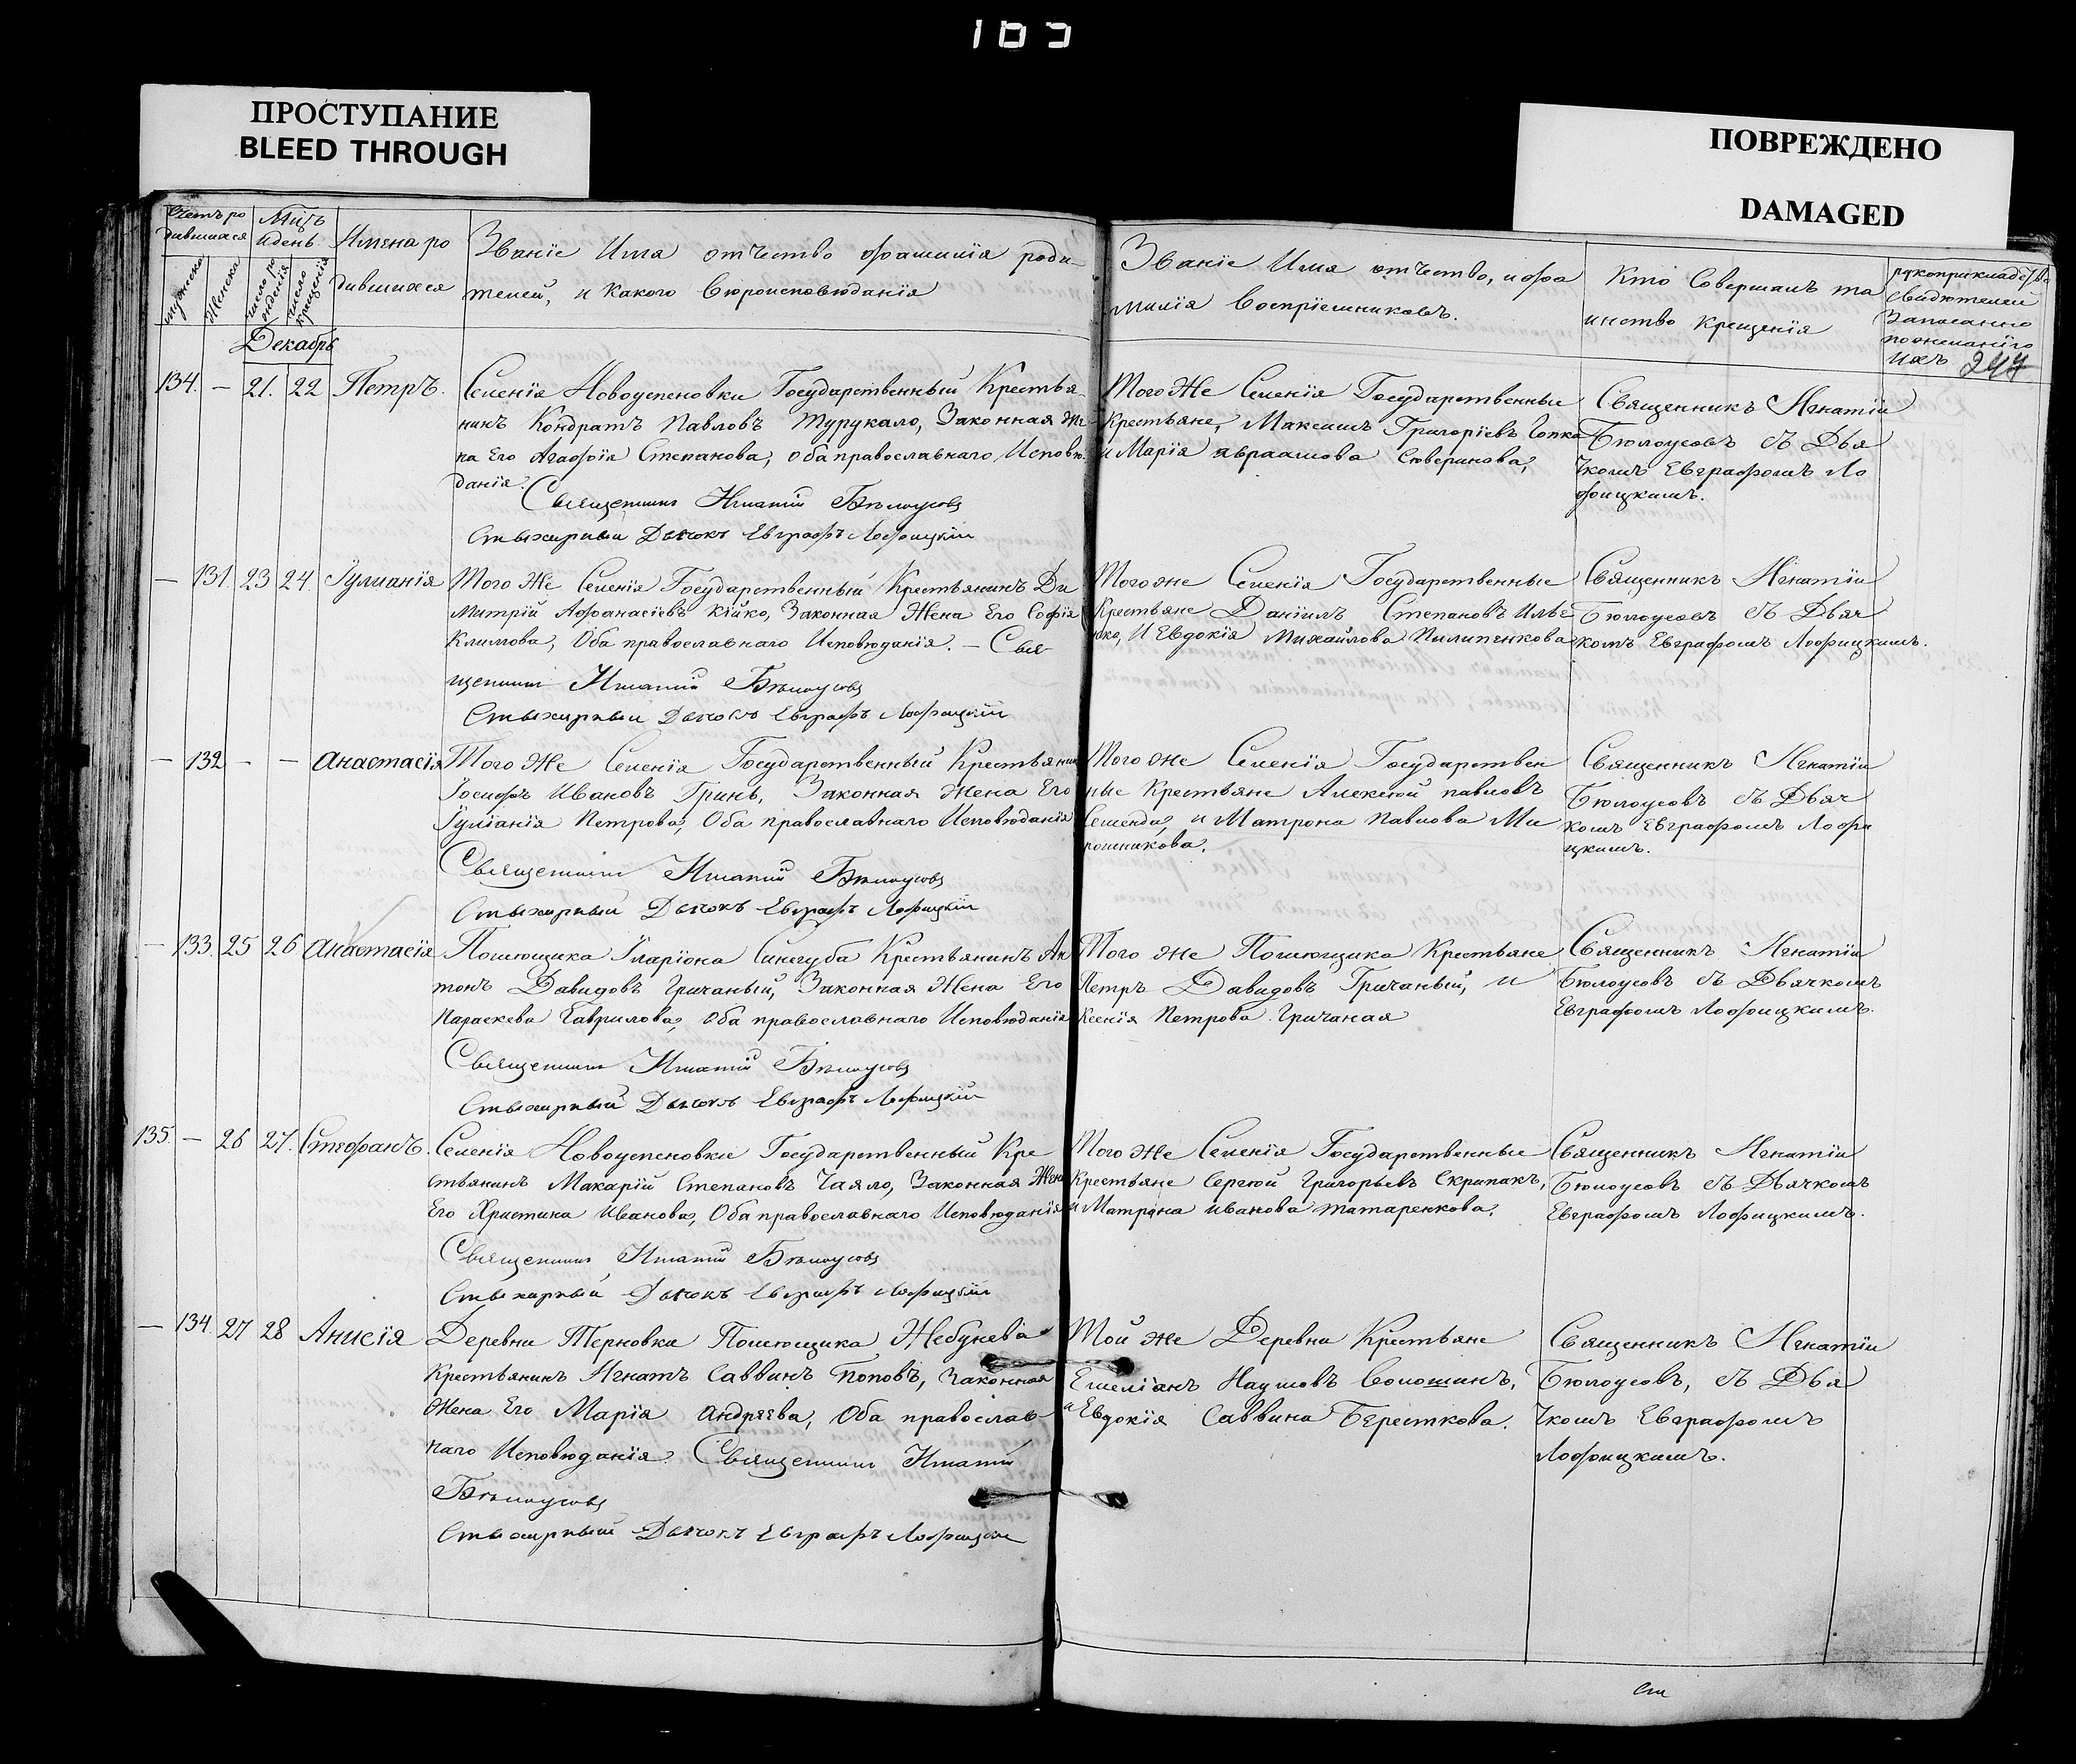 ПРОСТУПАНИЕ
BLEED THROUGH
ПОВРЕЖДЕНО
DAMAGED
Счетъ ро
дившихся
Мѣсѧцъ
и день
Имена ро
дившихся
Званіе Имя отчество фамилія роди-
телей, и какого вѣроисповѣданія
Званіе Имя отчество, и фа
милія Воспріемниковъ.
Кто совершалъ та
инство крещенія
рукоприкладство
свидѣтелей
записанно
по желанію
ихъ 244
мужеска
женска
число ро
жденія
число
крещенія
Декабрь
134. — 21. 22 Петръ.
Селенія Новоуспеновки Государственный Крестья-
нинъ Кондратъ Павловъ Турукало, Законная же-
на Его Агафія Степанова, оба православнаго Исповѣ-
данія.
Священникъ Игнатій Бѣлоусовъ
Стихарный Дьячокъ Евграфъ Лофицкій
Того Же Селенія Государственные
Крестьяне, Максимъ Григоріевъ Гопка
и Марія авраамова Сѣверинова,
Священникъ Игнатій
Бѣлоусовъ съ Дья
чкомъ Евграфомъ Ло
фицкимъ.
— 131. 23 24. Іулианія
Того Же Селенія Государственный Крестьянинъ Ди
митрій Афанасіевъ Кійко, Законная Жена Его Софія
Климова, Оба православнаго Исповѣданія. — Свя-
щенникъ Игнатій Бѣлоусовъ
Стихарный Дьячокъ Евграфъ Лофицкій
Того же Селенія Государственные
Крестьяне Даніилъ Степановъ Илье
нко, И Евдокія Михайлова Пилипенкова
Священникъ Игнатій
Бѣлоусовъ съ Дьяч
комъ Евграфомъ Лофицкимъ.
— 132 — — Анастасія
Того Же Селенія Государственный Крестьянинъ
Іосифъ Ивановъ Гринь, Законная жена Его
Іуліанія Петрова, Оба православнаго Исповѣданія
Священникъ Игнатій Бѣлоусовъ
Стихарный Дьячокъ Евграфъ Лофицкій
Того же Селенія Государствен
ные Крестьяне Алексѣй павловъ
Семенда, и Матрона Павлова Ми
рошникова.
Священникъ Игнатій
Бѣлоусовъ съ Дьяч
комъ Евграфомъ Лофи
цкимъ.
— 133. 25 26 Анастасія
Помѣщика Іларіона Синегуба Крестьянинъ Ан
тонъ Давидовъ Гричаный, Законная Жена Его
Параскева Гаврилова, оба православнаго Исповѣданія
Священникъ Игнатій Бѣлоусовъ
Стихарный Дьячокъ Евграфъ Лофицкій
Того же Помѣщика Крестьяне
Петръ Давидовъ Гричаный, и
Ксенія Петрова Гричаная
Священникъ Игнатій
Бѣлоусовъ съ Дьячкомъ
Евграфомъ Лофицкимъ.
135. — 26 27. Стефанъ.
Селенія Новоуспеновки Государственный Кре
стьянинъ Макарій Степановъ Чаяло, Законная Жена
Его Христина Иванова, Оба православнаго Исповѣданія
Священникъ Игнатій Бѣлоусовъ
Стихарный Дьячокъ Евграфъ Лофицкій
Того же Селенія Государственные
Крестьяне Сергѣй Григорьевъ Скрипакъ,
и Матрона иванова татаренкова.
Священникъ Игнатій
Бѣлоусовъ съ Дьячкомъ
Евграфомъ Лофицкимъ.
— 134. 27 28 Анисія
Деревни Терновки Помѣщика Жебунева
Крестьянинъ Игнатъ Саввинъ Поповъ, Законная
Жена Его Марія Андреева, Оба православ-
наго Исповѣданія. Священникъ Игнатій
Бѣлоусовъ
Стихарный Дьячокъ Евграфъ Лофицкій
Той же Деревни Крестьяне
Емеліанъ Наумовъ Волошинъ,
и Евдокія Саввина Бересткова.
Священникъ Игнатій
Бѣлоусовъ, съ Дья
чкомъ Евграфомъ
Лофицкимъ.